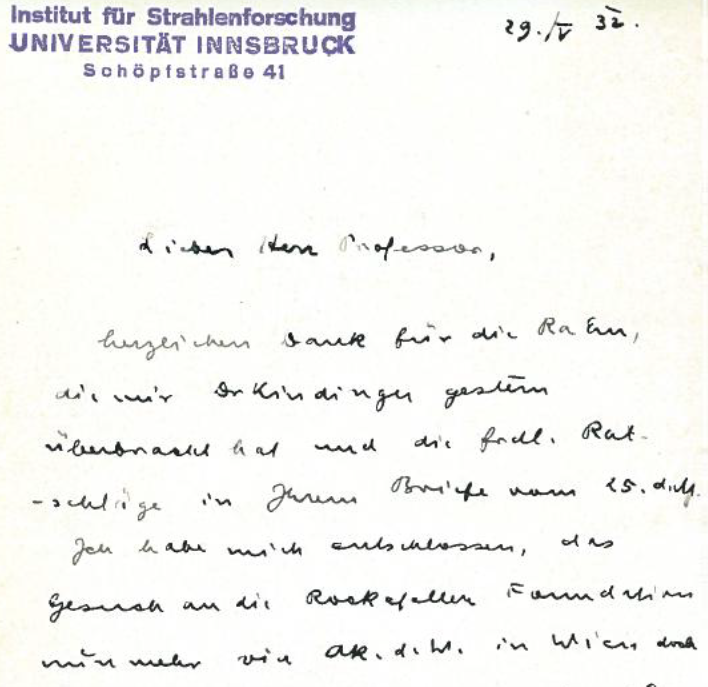 Institut für Strahlenforschung
UNIVERSITÄT INNSBRUCK
Schöpfstraße 41
29./V 32.
Lieber Herr Professor,
herzlichen Dank für die Ra Em,
die mir Dr Kindinger gestern
überbracht hat und die frdl. Rat-
-schläge in Ihrem Briefe vom 25. d.M.
Ich habe mich entschlossen, das
Gesuch an die Rockefeller Foundation
nunmehr via Ak.d.W. in Wien doch